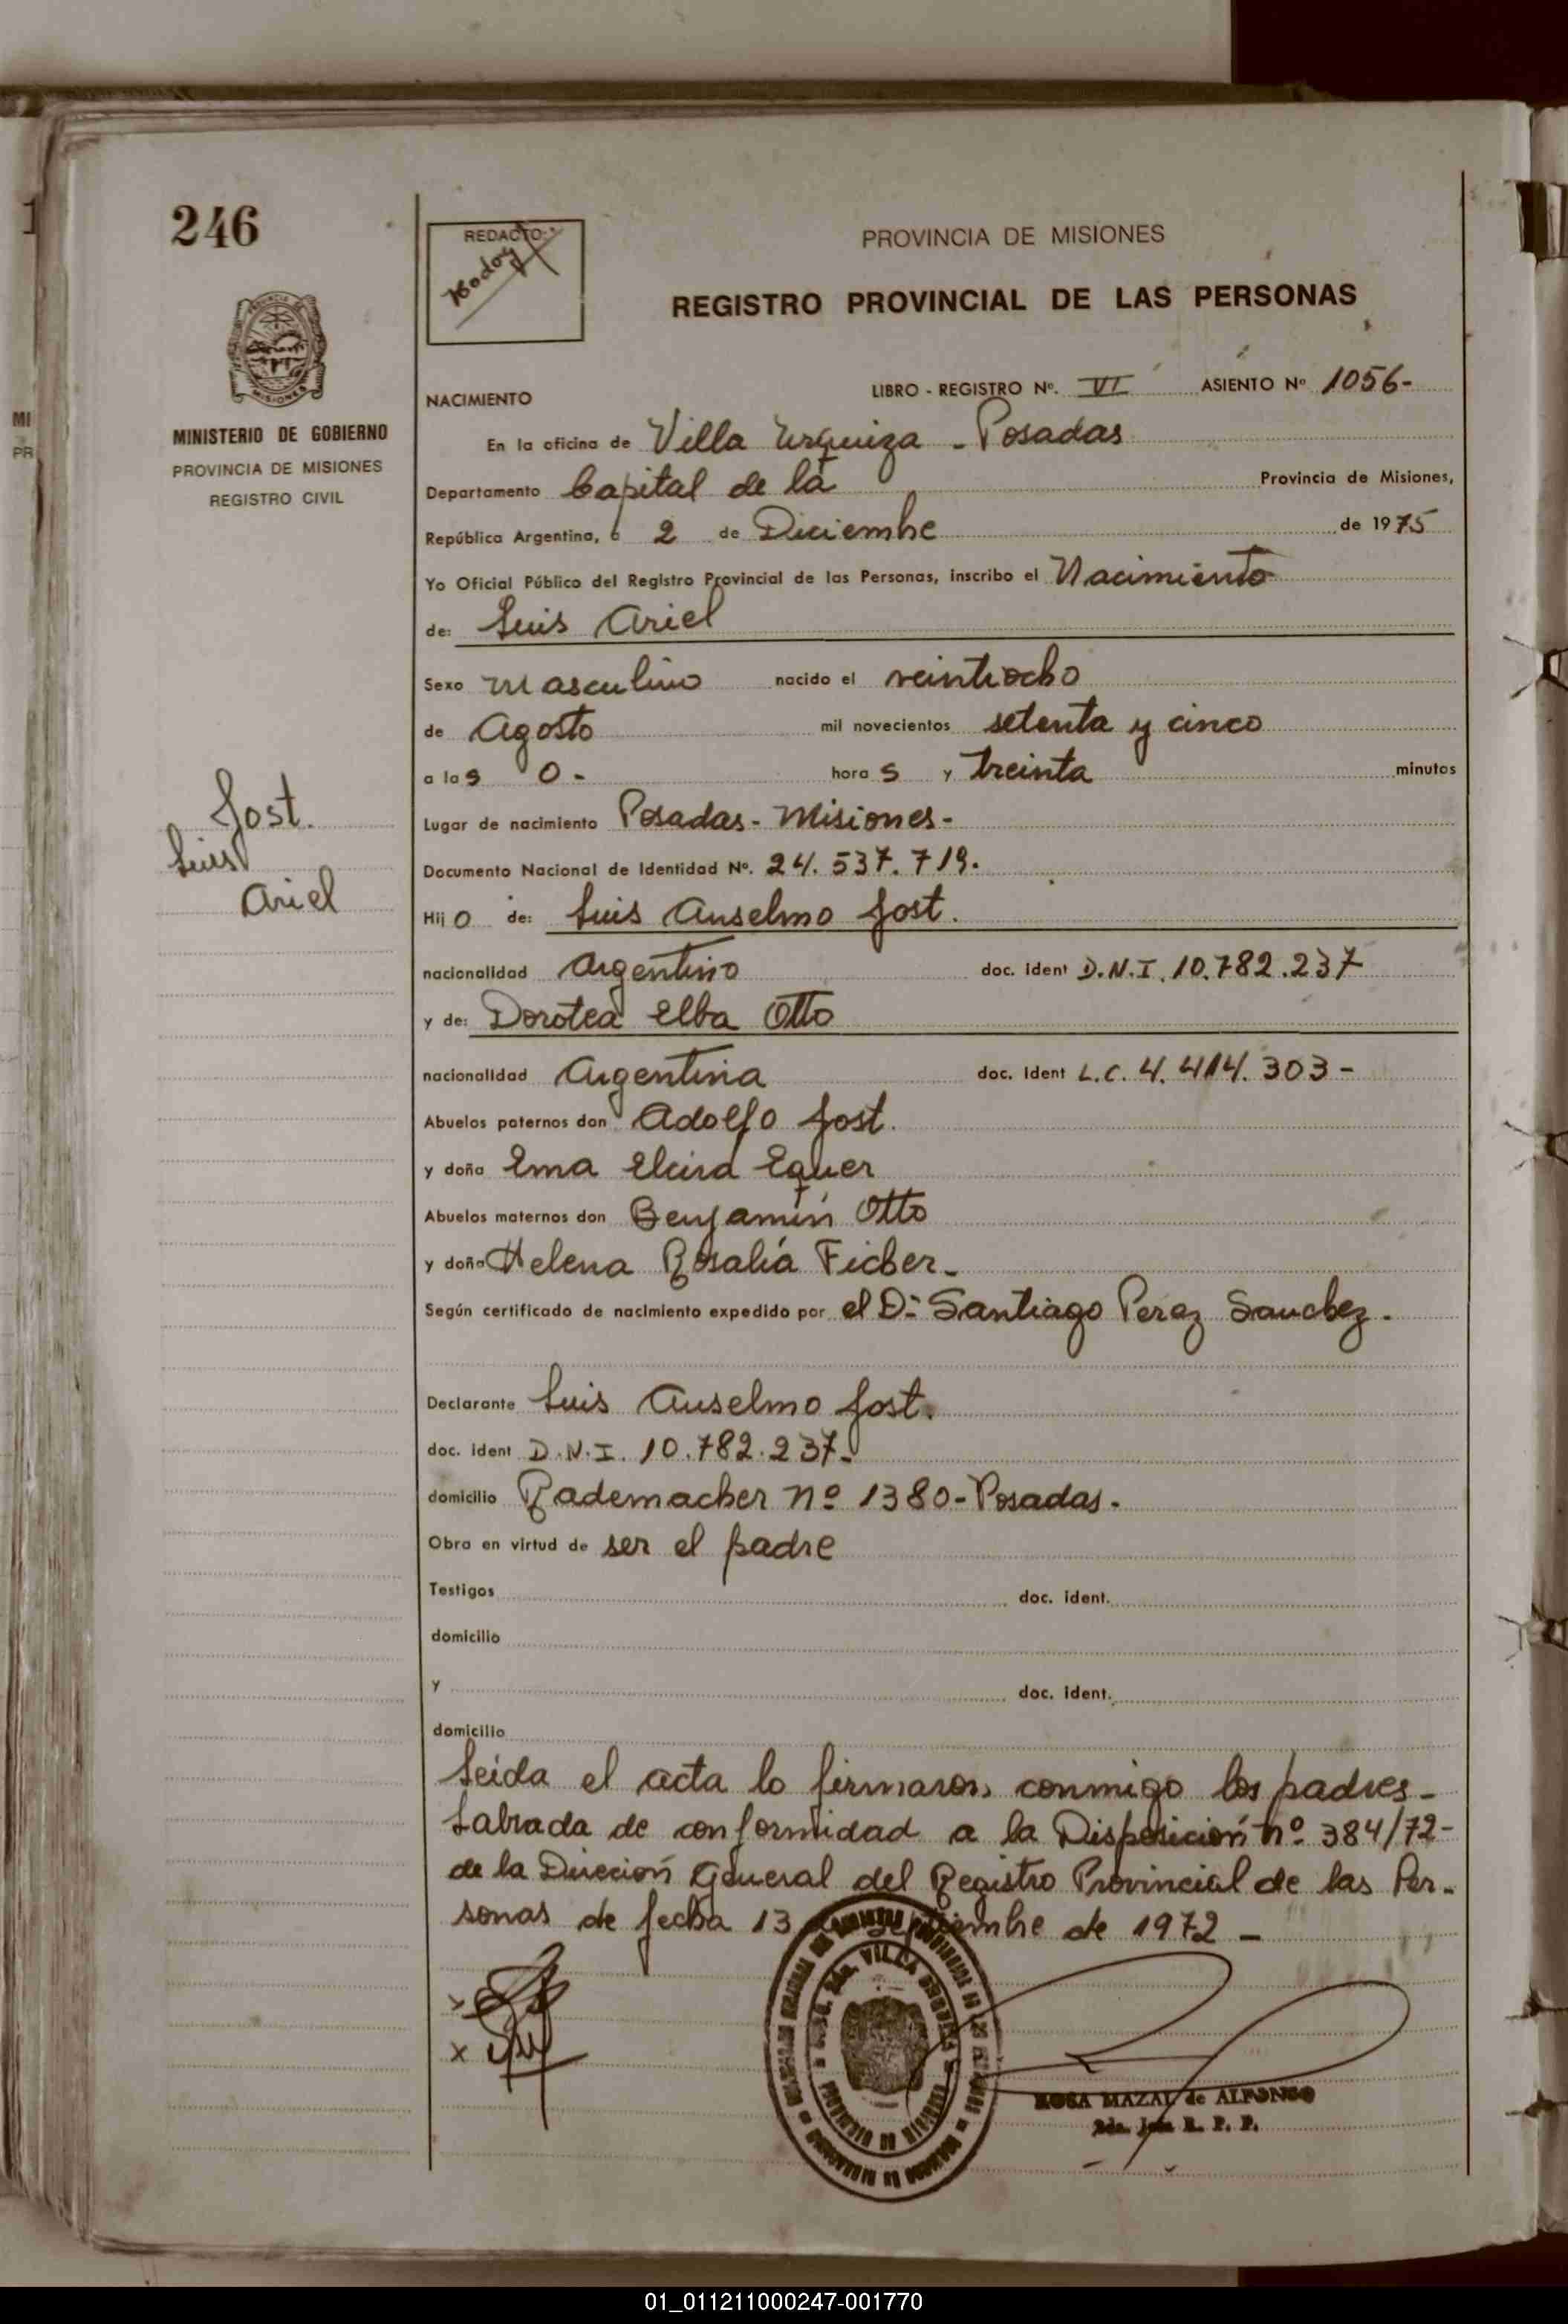 246
REDACTO:
PROVINCIA DE MISIONES
REGISTRO PROVINCIAL DE LAS PERSONAS
MINISTERIO DE GOBIERNO
PROVINCIA DE MISIONES
REGISTRO CIVIL
NACIMIENTO LIBRO - REGISTRO Nº. VI ASIENTO Nº 1056-
En la oficina de Villa Urquiza - Posadas
Departamento Capital de la Provincia de Misiones,
República Argentina, a 2 de Diciembre de 1975
Yo Oficial Público del Registro Provincial de las Personas, inscribo el Nacimiento
de: Luis Ariel
Sexo masculino nacido el veintiocho
de Agosto mil novecientos setenta y cinco
a las 0- horas y treinta minutos
Jost.
Luis
Ariel
Lugar de nacimiento Posadas- Misiones-
Documento Nacional de Identidad Nº. 24.537.719.
Hijo de: Luis Anselmo Jost.
nacionalidad Argentino doc. ident D.N.I. 10.782.237
y de: Dorotea Elba Otto
nacionalidad Argentina doc. ident L.C. 4.414.303-
Abuelos paternos don Adolfo Jost.
y doña Ema Elcira Equer
Abuelos maternos don Benjamín Otto
y doña Helena Rosalía Ficher-
Según certificado de nacimiento expedido por el Dr. Santiago Perez Sanchez.
Declarante Luis Anselmo Jost.
doc. ident D.N.I. 10.782.237-
domicilio Rademacher nº 1380-Posadas.
Obra en virtud de ser el padre
Testigos doc. ident.
domicilio
y doc. ident.
domicilio
Leida el acta lo firmaron conmigo los padres-
Labrada de conformidad a la Disposición nº 384/72-
de la Direción General del Registro Provincial de las Per-
sonas de fecha 13 de Septiembre de 1972-
ROSA MAZAL de ALFONSO
2da. Jefa R. P. P.
01_011211000247-001770